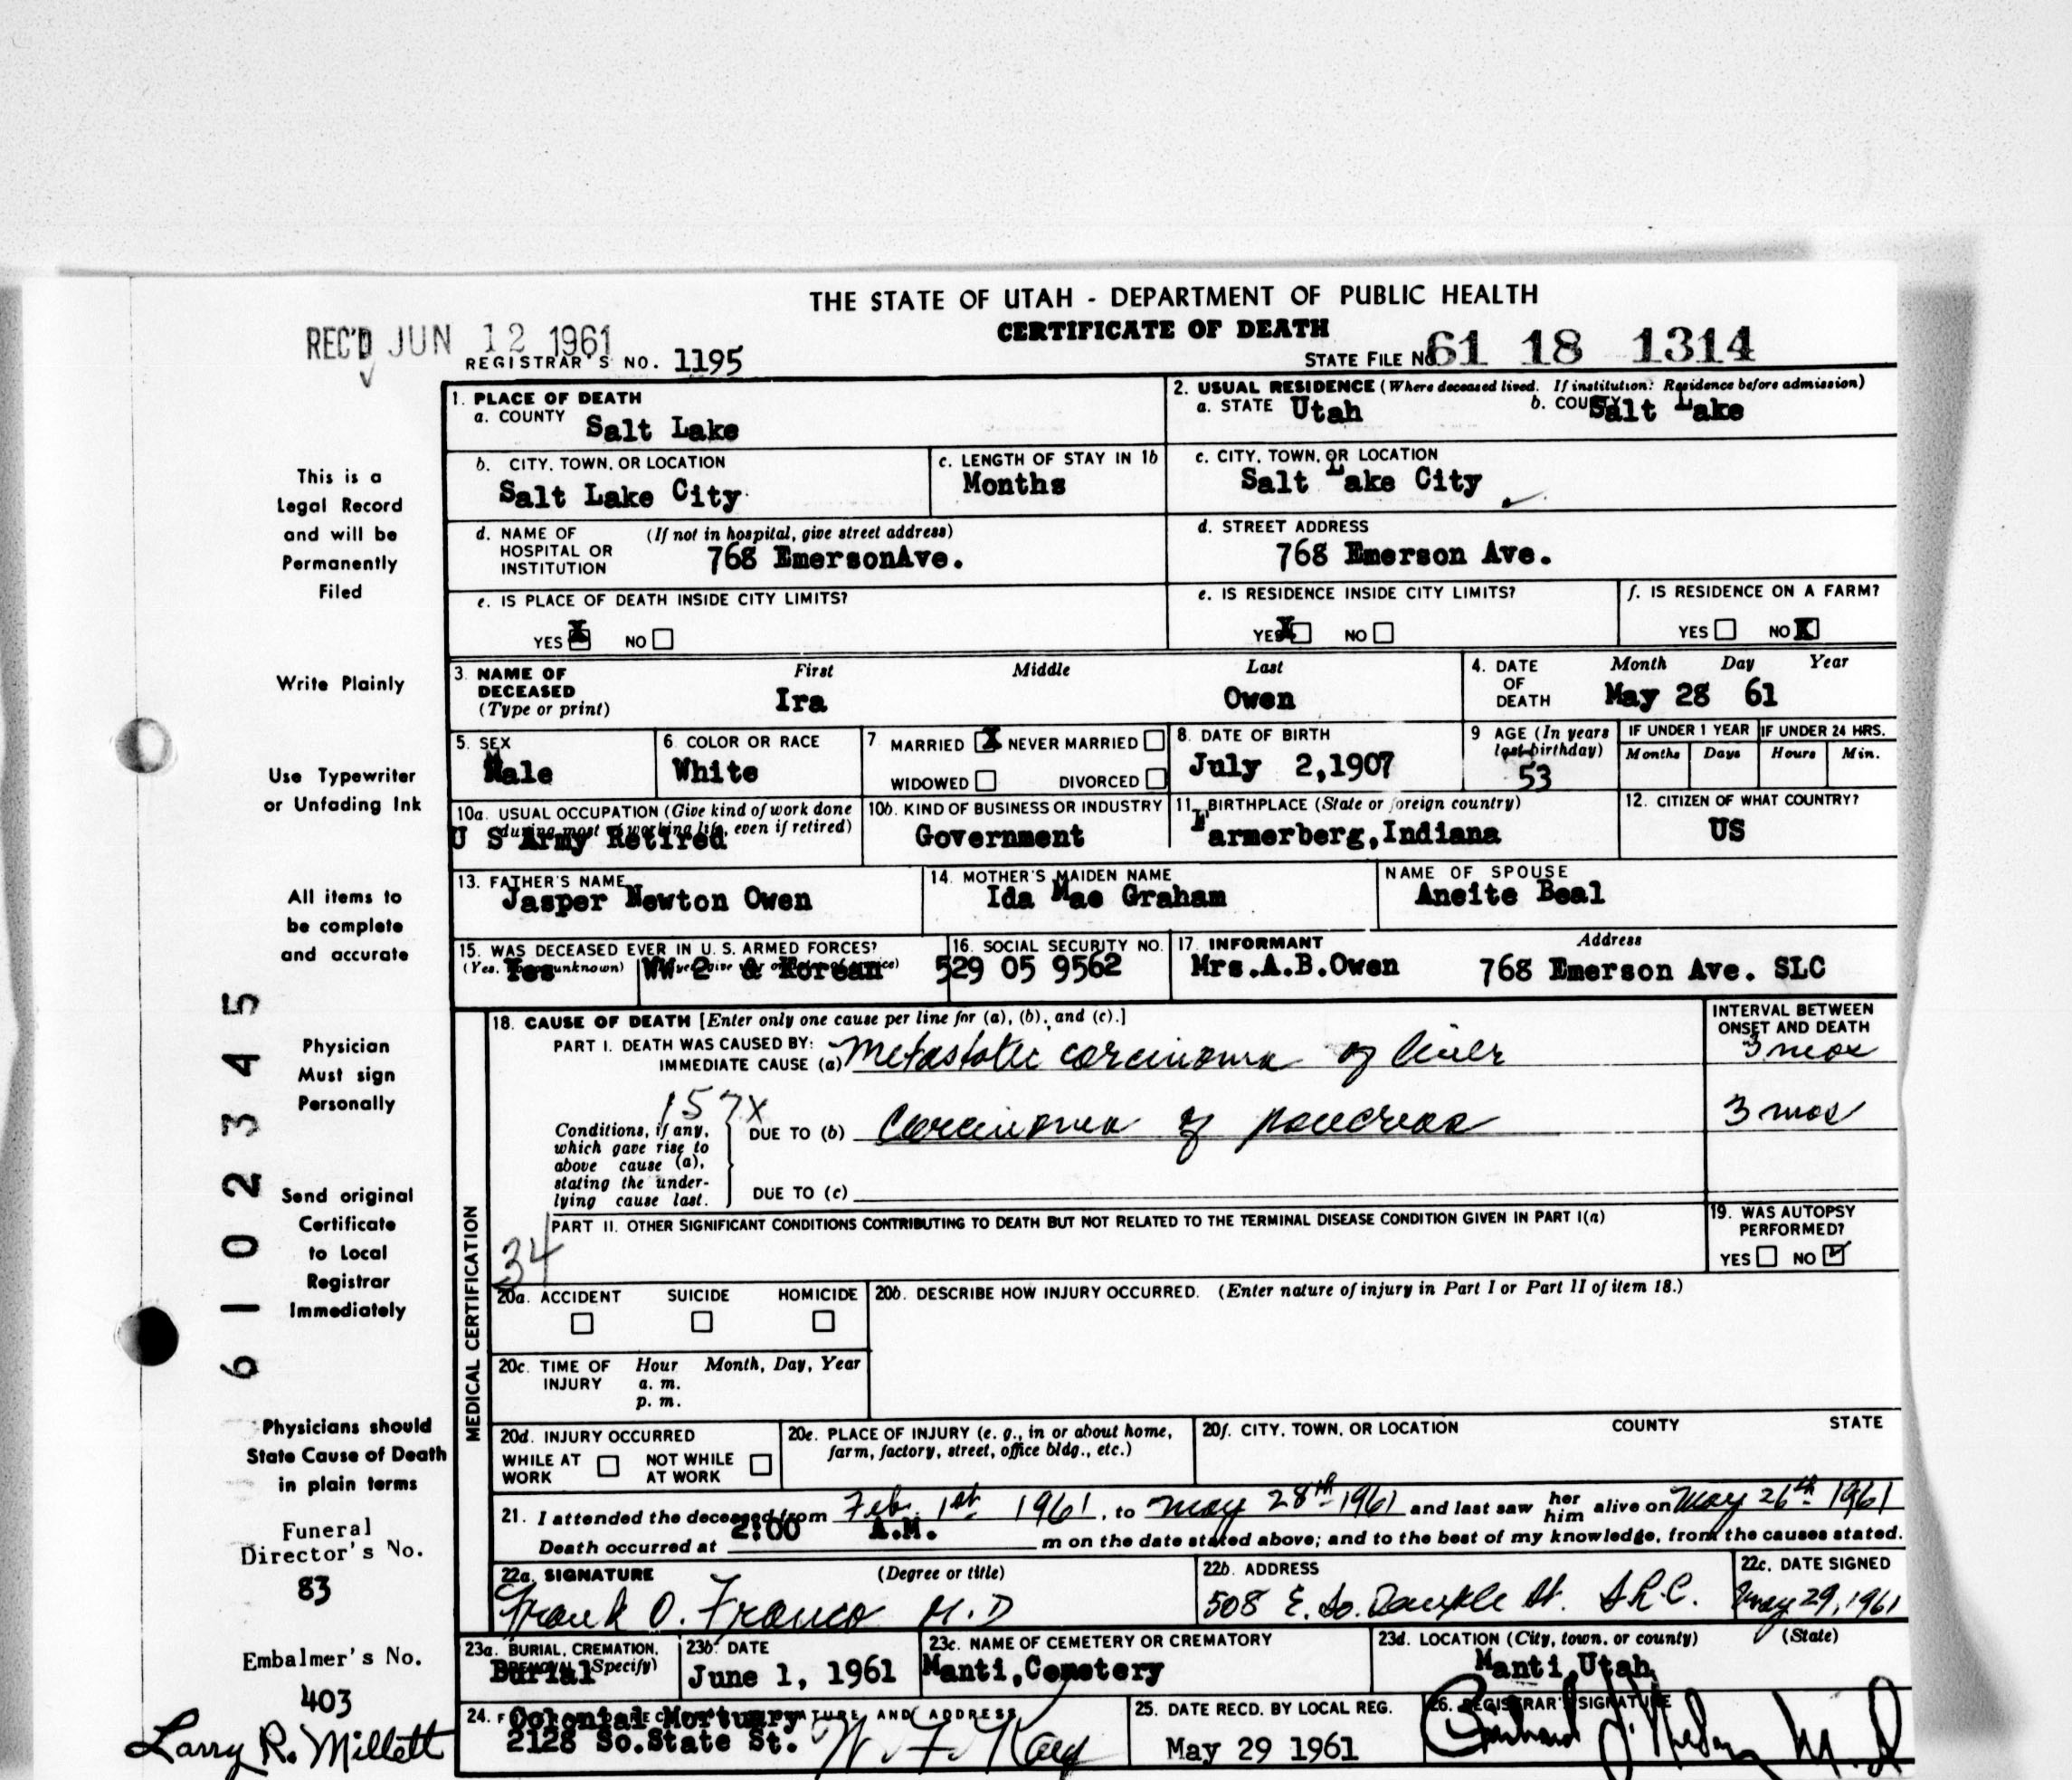 THE STATE OF UTAH - DEPARTMENT OF PUBLIC HEALTH
CERTIFICATE OF DEATH
REC'D JUN 12 1961
REGISTRAR'S NO. 1195
STATE FILE NO. 61 18 1314
1. PLACE OF DEATH
a. COUNTY Salt Lake
2. USUAL RESIDENCE (Where deceased lived. If institution: Residence before admission)
a. STATE Utah b. COUNTY Salt Lake
b. CITY, TOWN, OR LOCATION
Salt Lake City
c. LENGTH OF STAY IN 1b
Months
c. CITY, TOWN, OR LOCATION
Salt Lake City
d. NAME OF HOSPITAL OR INSTITUTION (If not in hospital, give street address)
768 EmersonAve.
d. STREET ADDRESS
768 Emerson Ave.
e. IS PLACE OF DEATH INSIDE CITY LIMITS?
YES X NO
e. IS RESIDENCE INSIDE CITY LIMITS?
YES X NO
f. IS RESIDENCE ON A FARM?
YES NO X
3. NAME OF DECEASED (Type or print)
First Middle Last
Ira Owen
4. DATE OF DEATH
Month Day Year
May 28 61
5. SEX
Male
6. COLOR OR RACE
White
7 MARRIED X NEVER MARRIED
WIDOWED DIVORCED
8. DATE OF BIRTH
July 2,1907
9 AGE (In years last birthday)
53
IF UNDER 1 YEAR
Months Days
IF UNDER 24 HRS.
Hours Min.
10a. USUAL OCCUPATION (Give kind of work done during most of working life, even if retired)
U S Army Retired
10b. KIND OF BUSINESS OR INDUSTRY
Government
11. BIRTHPLACE (State or foreign country)
Farmerberg,Indiana
12. CITIZEN OF WHAT COUNTRY?
US
13. FATHER'S NAME
Jasper Newton Owen
14. MOTHER'S MAIDEN NAME
Ida Mae Graham
NAME OF SPOUSE
Aneite Beal
15. WAS DECEASED EVER IN U. S. ARMED FORCES?
(Yes, no, or unknown)
Yes WW 2 & Korean
16. SOCIAL SECURITY NO.
529 05 9562
17. INFORMANT Address
Mrs.A.B.Owen 768 Emerson Ave. SLC
MEDICAL CERTIFICATION
18. CAUSE OF DEATH [Enter only one cause per line for (a), (b), and (c).]
INTERVAL BETWEEN ONSET AND DEATH
PART I. DEATH WAS CAUSED BY:
IMMEDIATE CAUSE (a) Metastatic carcinoma of liver 3 mos
157X
Conditions, if any, which gave rise to above cause (a), stating the underlying cause last.
DUE TO (b) Carcinoma of pancreas 3 mos
DUE TO (c)
PART II. OTHER SIGNIFICANT CONDITIONS CONTRIBUTING TO DEATH BUT NOT RELATED TO THE TERMINAL DISEASE CONDITION GIVEN IN PART I(a)
34
19. WAS AUTOPSY PERFORMED?
YES NO ✓
20a. ACCIDENT SUICIDE HOMICIDE
20b. DESCRIBE HOW INJURY OCCURRED. (Enter nature of injury in Part I or Part II of item 18.)
20c. TIME OF INJURY Hour Month, Day, Year
a. m.
p. m.
20d. INJURY OCCURRED
WHILE AT WORK NOT WHILE AT WORK
20e. PLACE OF INJURY (e. g., in or about home, farm, factory, street, office bldg., etc.)
20f. CITY, TOWN, OR LOCATION COUNTY STATE
21. I attended the deceased from Feb. 1st 1961, to May 28th 1961 and last saw her him alive on May 26th 1961
Death occurred at 2:00 A.M. m on the date stated above; and to the best of my knowledge, from the causes stated.
22a. SIGNATURE (Degree or title)
Frank O. Franco M.D
22b. ADDRESS
508 E. So. Temple St. S.L.C.
22c. DATE SIGNED
May 29, 1961
23a. BURIAL, CREMATION, REMOVAL (Specify)
Burial
23b. DATE
June 1, 1961
23c. NAME OF CEMETERY OR CREMATORY
Manti,Cemetery
23d. LOCATION (City, town, or county) (State)
Manti,Utah
24. SIGNATURE AND ADDRESS
Colonial Mortuary
2128 So.State St.
25. DATE RECD. BY LOCAL REG.
May 29 1961
26. REGISTRAR'S SIGNATURE
This is a
Legal Record
and will be
Permanently
Filed
Write Plainly
Use Typewriter
or Unfading Ink
All items to
be complete
and accurate
Physician
Must sign
Personally
Send original
Certificate
to Local
Registrar
Immediately
Physicians should
State Cause of Death
in plain terms
Funeral
Director's No.
83
Embalmer's No.
403
Larry R. Millett
6102345